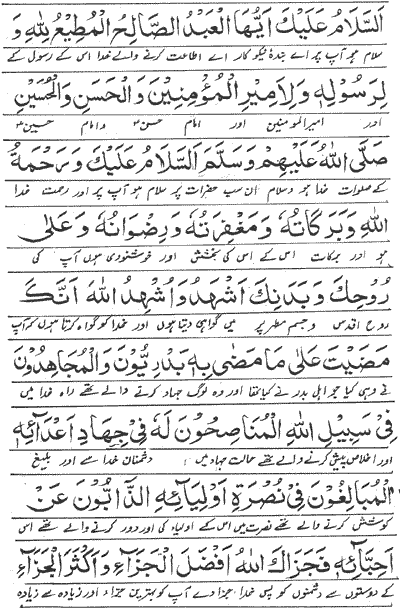 اَلسَّلَامُ عَلَيْكَ اَيُّهَا الْعَبْدُ الصَّالِحُ الْمُطِيْعُ لِلّٰهِ وَ
سلام ہو آپ پر اے بندۂ نیکو کار اے اطاعت کرنے والے خدا اس کے رسول کے
لِرَسُوْلِهٖ وَلِاَمِيْرِ الْمُؤْمِنِيْنَ وَالْحَسَنِ وَالْحُسَيْنِ
اور امیر المومنین اور امام حسنؑ و امام حسینؑ
صَلَّى اللّٰهُ عَلَيْهِمْ وَسَلَّمَ اَلسَّلَامُ عَلَيْكَ وَرَحْمَةُ
کے صلوات خدا ہو و سلام ان سب حضرات پر سلام ہو آپ پر اور رحمت خدا
اللّٰهِ وَبَرَكَاتُهٗ وَمَغْفِرَتُهٗ وَرِضْوَانُهٗ وَعَلٰى
ہو اور برکات اس کے اس کی بخشش اور خوشنودی ہوں آپ کی
رُوْحِكَ وَبَدَنِكَ اَشْهَدُ وَاُشْهِدُ اللّٰهَ اَنَّكَ
روح اقدس و جسم مطہر پر میں گواہی دیتا ہوں اور خدا کو گواہ کرتا ہوں کہ آپ
مَضَيْتَ عَلٰى مَا مَضٰى بِهِ الْبَدْرِيُّوْنَ وَالْمُجَاهِدُوْنَ
نے وہی کیا جو اہل بدر نے کیا تھا اور وہ لوگ جہاد کرنے والے تھے راہ خدا میں
فِيْ سَبِيْلِ اللّٰهِ الْمُنَاصِحُوْنَ لَهٗ فِيْ جِهَادِ اَعْدَائِهٖ
اور اخلاص پیش کرنے والے تھے حالت جہاد میں دشمنان خدا سے اور بلیغ
الْمُبَالِغُوْنَ فِيْ نُصْرَةِ اَوْلِيَائِهِ الذَّابُّوْنَ عَنْ
کوشش کرنے والے تھے نصرت میں اس کے اولیاء کی اور دور کرنے والے تھے اس
اَحِبَّائِهٖ فَجَزَاكَ اللّٰهُ اَفْضَلَ الْجَزَاءِ وَاَكْثَرَ الْجَزَاءِ
کے دوستوں سے دشمنوں کو پس خدا جزا دے آپ کو بہترین جزاء اور زیادہ سے زیادہ